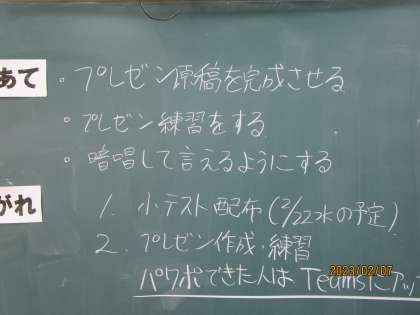 あて
・プレゼン原稿を完成させる
・プレゼン練習をする
・暗唱して言えるようにする
がれ
1. 小テスト配布(2/22水の予定)
2. プレゼン作成・練習
パワポできた人は Teamsにアッ
2023/02/07